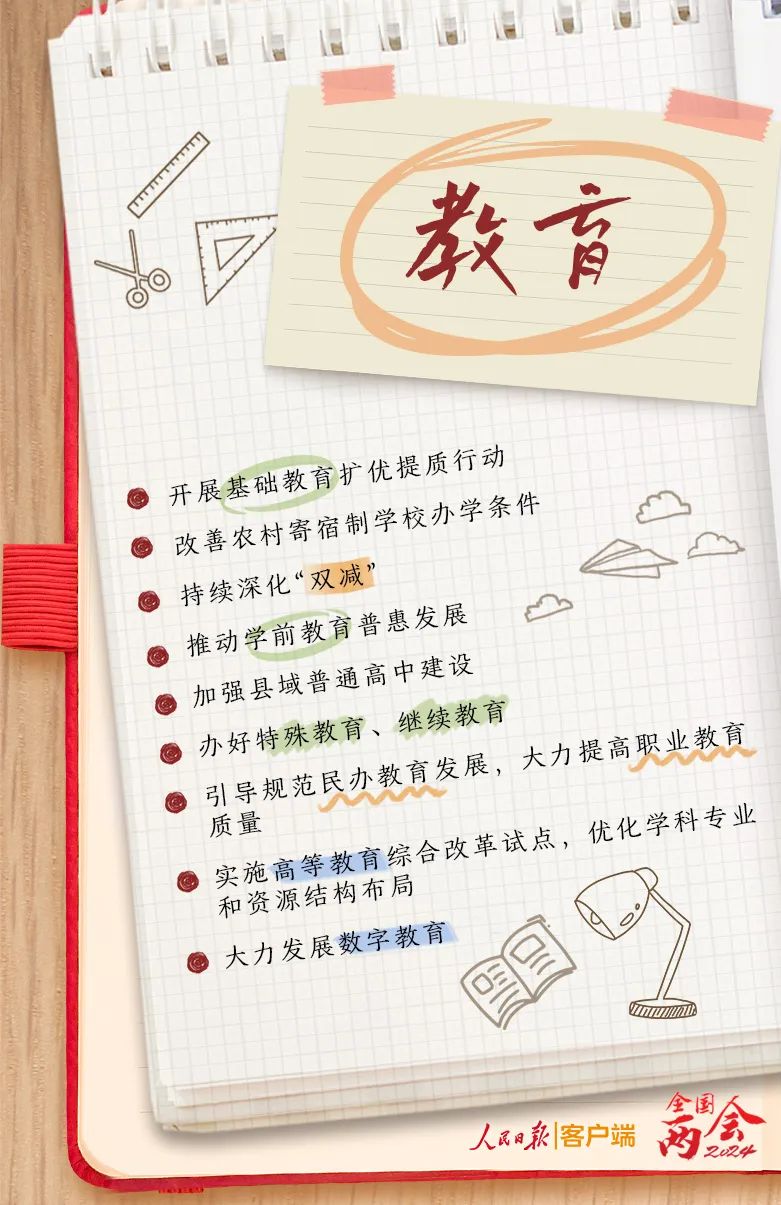 教育
开展基础教育扩优提质行动
改善农村寄宿制学校办学条件
持续深化“双减”
推动学前教育普惠发展
加强县域普通高中建设
办好特殊教育、继续教育
引导规范民办教育发展，大力提高职业教育
质量
实施高等教育综合改革试点，优化学科专业
和资源结构布局
大力发展数字教育
人民日报|客户端
全国
两会
2024